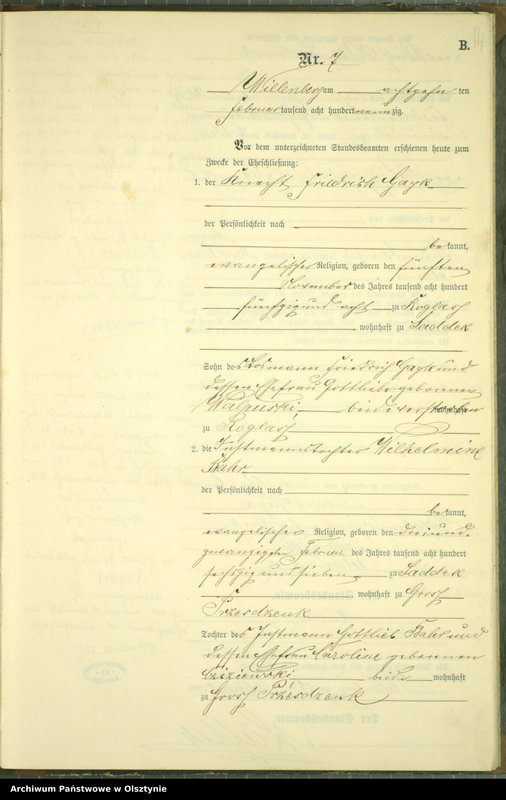 B.
14
Nr. 7
Willenberg am achtzehnten
Februar tausend acht hundert neunzig.
Vor dem unterzeichneten Standesbeamten erschienen heute zum
Zwecke der Eheschließung:
1. der Knecht Friedrich Gayk
der Persönlichkeit nach
bekannt,
evangelischer Religion, geboren den fünften
November des Jahres tausend acht hundert
fünfzig und acht zu Roglass
, wohnhaft zu Saddek
Sohn des Losmann Friedrich Gayk und
dessen Ehefrau Gottliebe geborenen
Walpuski, beide verstorben
zu Roglass
2. die Instmannstochter Wilhelmine
Bahr
der Persönlichkeit nach
bekannt,
evangelischer Religion, geboren den dreiund-
zwanzigsten Februar des Jahres tausend acht hundert
sechszig und sieben zu Saddek
, wohnhaft zu Gross
Przesdzenk
Tochter des Instmann Gottlieb Bahr und
dessen Ehefrau Caroline geborenen
beide wohnhaft
zu Gross Przesdzenk
Archiwum Państwowe w Olsztynie